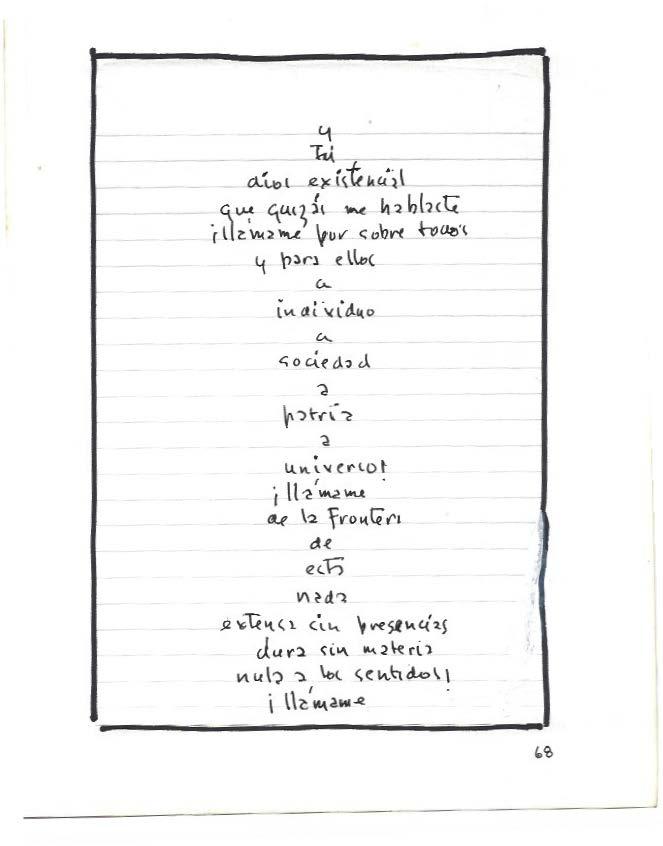 y
Tú
dios existencial
que quizás me hablaste
¡llámame por sobre todos
y para ellos
a
individuo
a
sociedad
a
patria
a
universo!
¡llámame
de la frontera
de
esta
nada
extensa sin presencias
dura sin materia
nula a los sentidos!
¡llámame
68